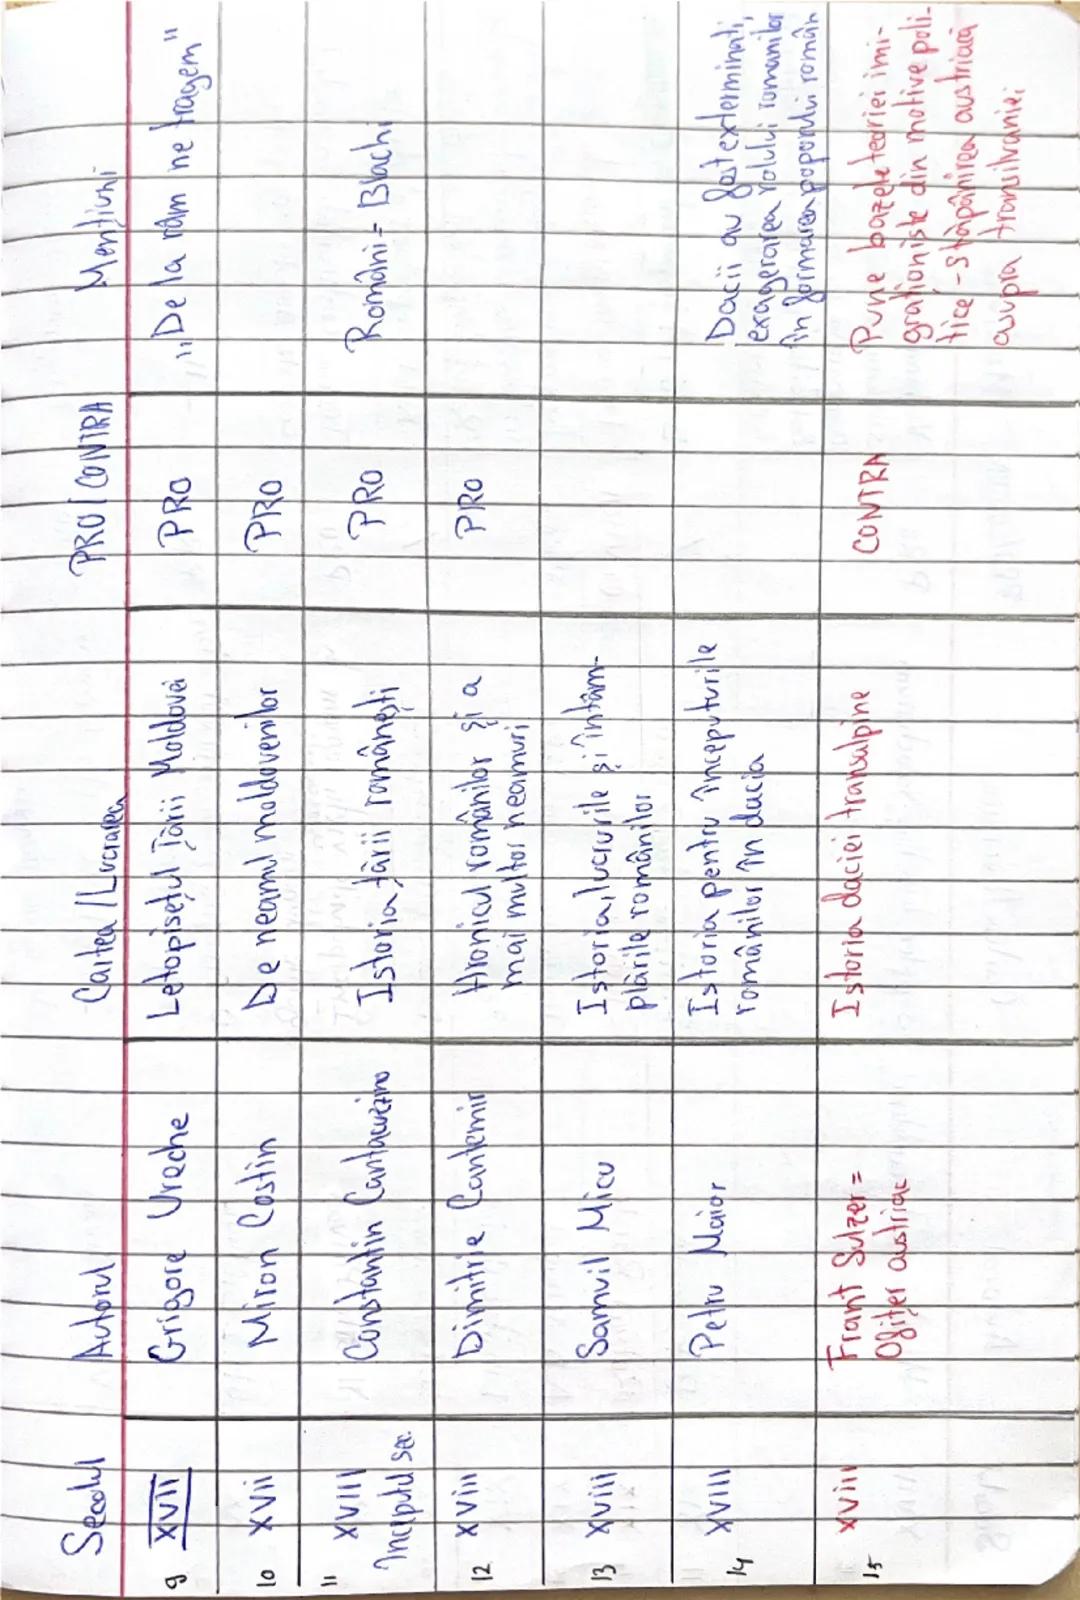 Secolul Autorul Cartea/Lucrarea PRO/CONTRA Mențiuni
9 XVII Grigore Ureche Letopisețul Țării Moldovei PRO „De la râm ne tragem"
10 XVII Miron Costin De neamul moldovenilor PRO
11 XVIII Constantin Cantacuzino Istoria țării românești PRO Români = Blachi
Începutul sec.
12 XVIII Dimitrie Cantemir Hronicul românilor și a PRO
mai multor neamuri
13 XVIII Samuil Micu Istoria, lucrurile și întâm-
plările românilor
14 XVIII Petru Maior Istoria pentru începuturile
românilor în dacia
Dacii au fost exterminați,
exagerarea rolului romanilor
în formarea poporului român
15 XVIII Franț Sulzer =
Ofițer austriac
Istoria daciei transalpine CONTRA
Pune bazele teoriei imi-
graționiste din motive poli-
tice - stăpânirea austriacă
asupra transilvaniei